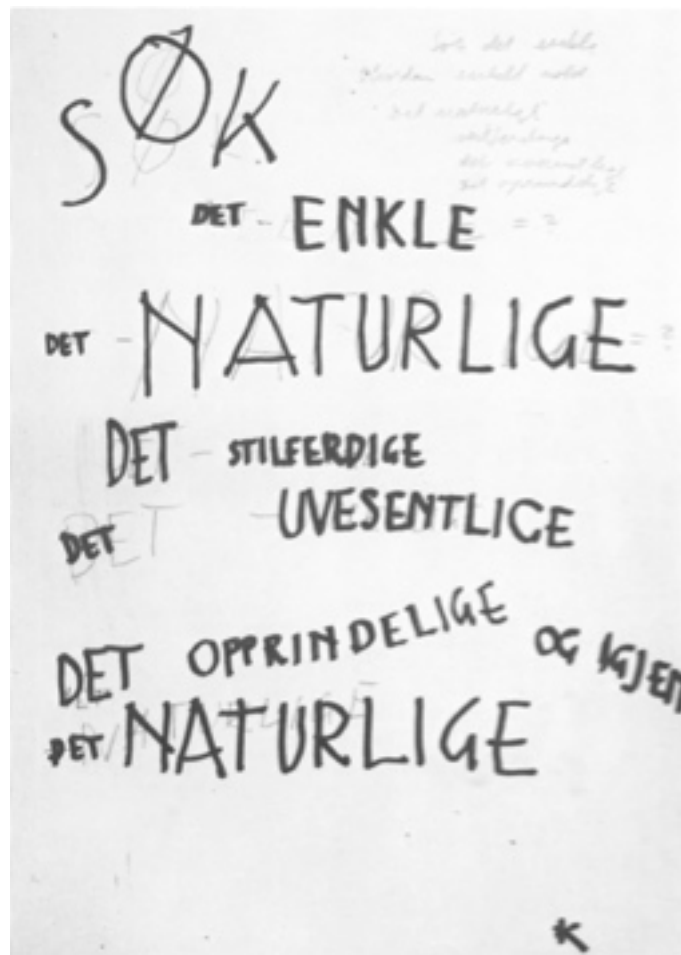 SØK
DET ENKLE = ?
DET NATURLIGE = ?
DET STILFERDIGE
DET UVESENTLIGE
DET OPPRINDELIGE OG IGJEN
DET NATURLIGE
K